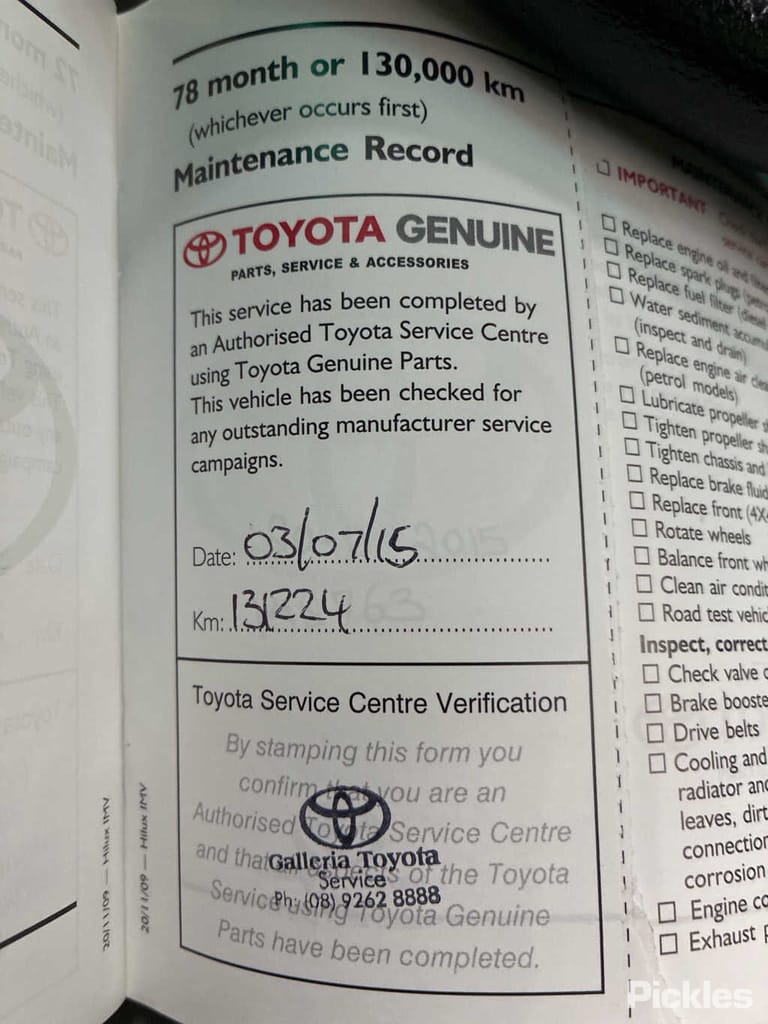 78 month or 130,000 km
(whichever occurs first)
Maintenance Record
TOYOTA GENUINE
PARTS, SERVICE & ACCESSORIES
This service has been completed by
an Authorised Toyota Service Centre
using Toyota Genuine Parts.
This vehicle has been checked for
any outstanding manufacturer service
campaigns.
Date: 03/07/15
Km: 131224
Toyota Service Centre Verification
By stamping this form you
confirm that you are an
Authorised Toyota Service Centre
and that all aspects of the Toyota
Service using Toyota Genuine
Parts have been completed.
Galleria Toyota
Service
Ph: (08) 9262 8888
20/11/09 — Hilux IMV
IMPORTANT
Replace engine oil and
Replace spark plugs
Replace fuel filter (diesel
Water sediment
(inspect and drain)
Replace engine air
(petrol models)
Lubricate propeller
Tighten propeller
Tighten chassis and
Replace brake fluid
Replace front (4X
Rotate wheels
Balance front
Clean air
Road test
Inspect, correct
Check valve
Brake
Drive belts
Cooling and
radiator
leaves, dirt
connection
corrosion
Engine
Exhaust
Pickles